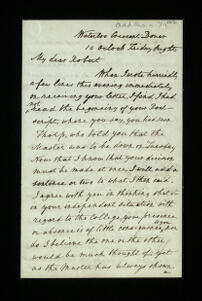 Waterloo Crescent Dover
10 o'clock Friday Night
My dear Robert
When I wrote hurriedly
a few lines this evening immediately
on receiving your letter, I find I had
not
read the beginning of your Post-
script, where you say, you had seen
Thorp, who told you that the
Master was to be down on Tuesday.
Now that I know that your decision
must be made at once, I will add a
sentence or two to what I then said.
I agree with you in thinking that
in your independent situation with
regard to the College, your presence
or absence is of little consequence, nor
do I believe the one or the other
would be much thought of, yet
as the Master has always shown